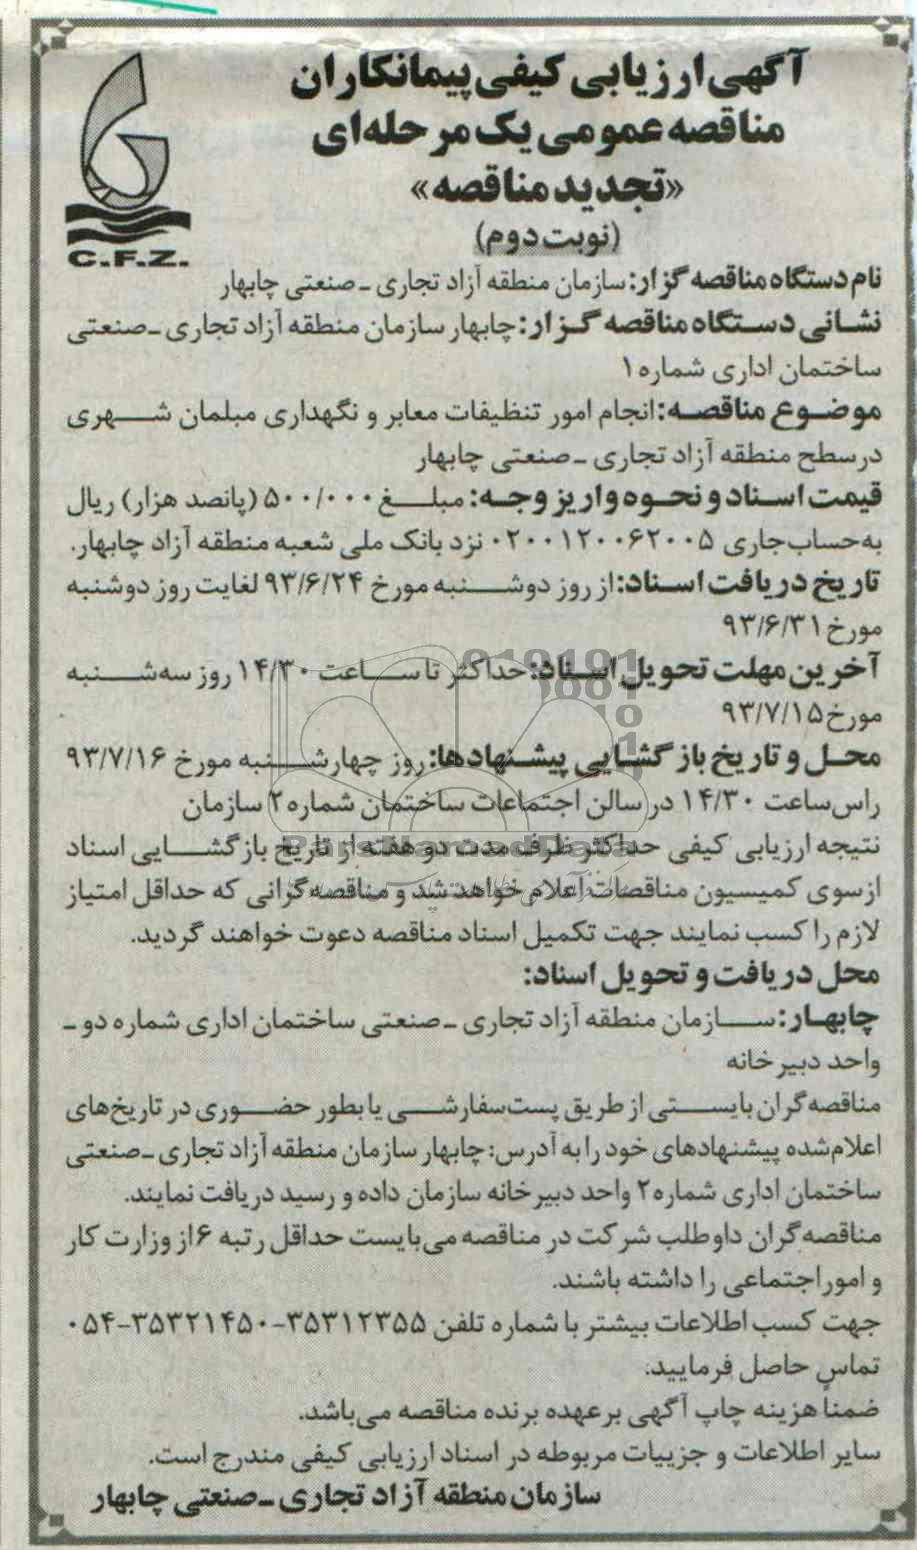 آگهی ارزیابی کیفی پیمانکاران
مناقصه عمومی یک مرحله‌ای
«تجدید مناقصه»
(نوبت دوم)
C.F.Z.
نام دستگاه مناقصه گزار: سازمان منطقه آزاد تجاری ـ صنعتی چابهار
نشانی دستگاه مناقصه گزار: چابهار سازمان منطقه آزاد تجاری ـ صنعتی
ساختمان اداری شماره ۱
موضوع مناقصه: انجام امور تنظیفات معابر و نگهداری مبلمان شهری
در سطح منطقه آزاد تجاری ـ صنعتی چابهار
قیمت اسناد و نحوه واریز وجه: مبلغ ۵۰۰/۰۰۰ (پانصد هزار) ریال
به‌حساب‌جاری ۰۲۰۰۱۲۰۰۶۲۰۰۵ نزد بانک ملی شعبه منطقه آزاد چابهار.
تاریخ دریافت اسناد: از روز دوشنبه مورخ ۹۳/۶/۲۴ لغایت روز دوشنبه
مورخ ۹۳/۶/۳۱
آخرین مهلت تحویل اسناد: حداکثر تا ساعت ۱۴/۳۰ روز سه‌شنبه
مورخ ۹۳/۷/۱۵
محل و تاریخ بازگشایی پیشنهادها: روز چهارشنبه مورخ ۹۳/۷/۱۶
راس ساعت ۱۴/۳۰ در سالن اجتماعات ساختمان شماره ۲ سازمان
نتیجه ارزیابی کیفی حداکثر ظرف مدت دو هفته از تاریخ بازگشایی اسناد
ازسوی کمیسیون مناقصات اعلام خواهد شد و مناقصه گرانی که حداقل امتیاز
لازم را کسب نمایند جهت تکمیل اسناد مناقصه دعوت خواهند گردید.
محل دریافت و تحویل اسناد:
چابهار: سازمان منطقه آزاد تجاری ـ صنعتی ساختمان اداری شماره دو ـ
واحد دبیرخانه
مناقصه‌گران بایستی از طریق پست‌سفارشی یا بطور حضوری در تاریخ‌های
اعلام‌شده پیشنهادهای خود را به آدرس: چابهار سازمان منطقه آزاد تجاری ـ صنعتی
ساختمان اداری شماره ۲ واحد دبیرخانه سازمان داده و رسید دریافت نمایند.
مناقصه‌گران داوطلب شرکت در مناقصه می‌بایست حداقل رتبه ۶ از وزارت کار
و امور اجتماعی را داشته باشند.
جهت کسب اطلاعات بیشتر با شماره تلفن ۳۵۳۱۲۳۵۵-۳۵۳۲۱۴۵۰-۰۵۴
تماس حاصل فرمایید.
ضمنا هزینه چاپ آگهی برعهده برنده مناقصه می‌باشد.
سایر اطلاعات و جزییات مربوطه در اسناد ارزیابی کیفی مندرج است.
سازمان منطقه آزاد تجاری ـ صنعتی چابهار